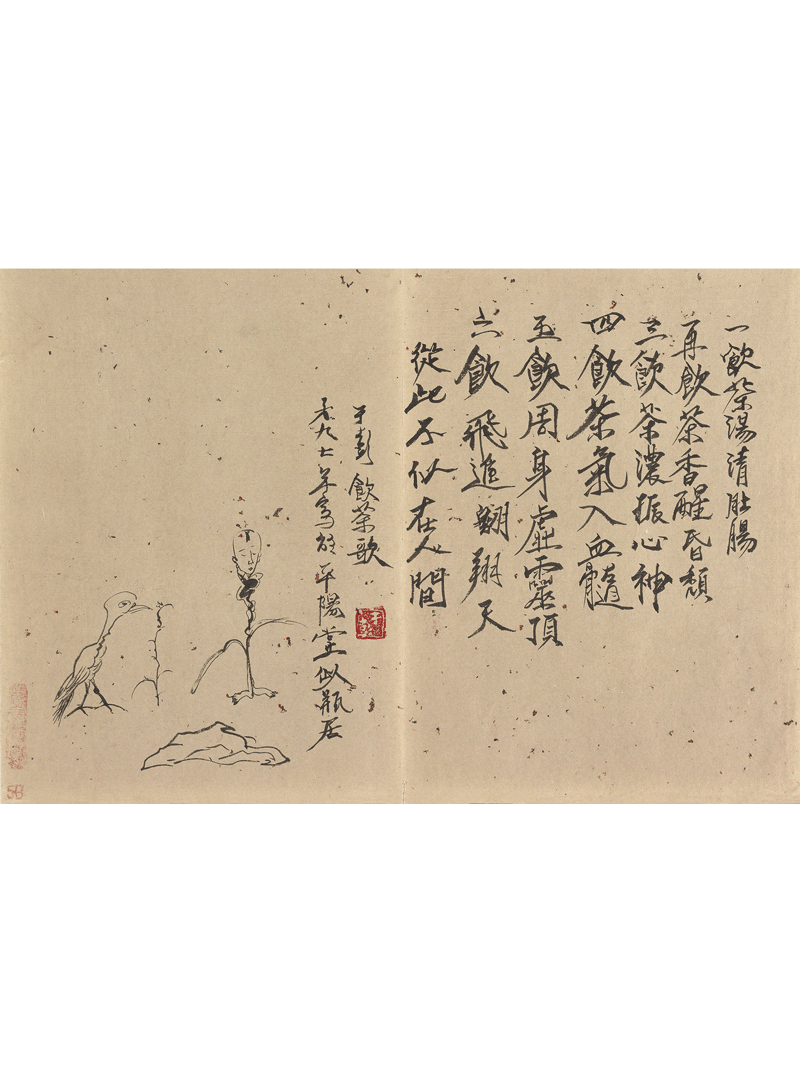 一飲茶湯清肚腸
再飲茶香醒昏頹
三飲茶濃振心神
四飲茶氣入血髓
五飲周身虛靈頂
六飲飛進翱翔天
從此不似在人間
于彭飲茶歌
九七年寫於平陽堂似瓶居